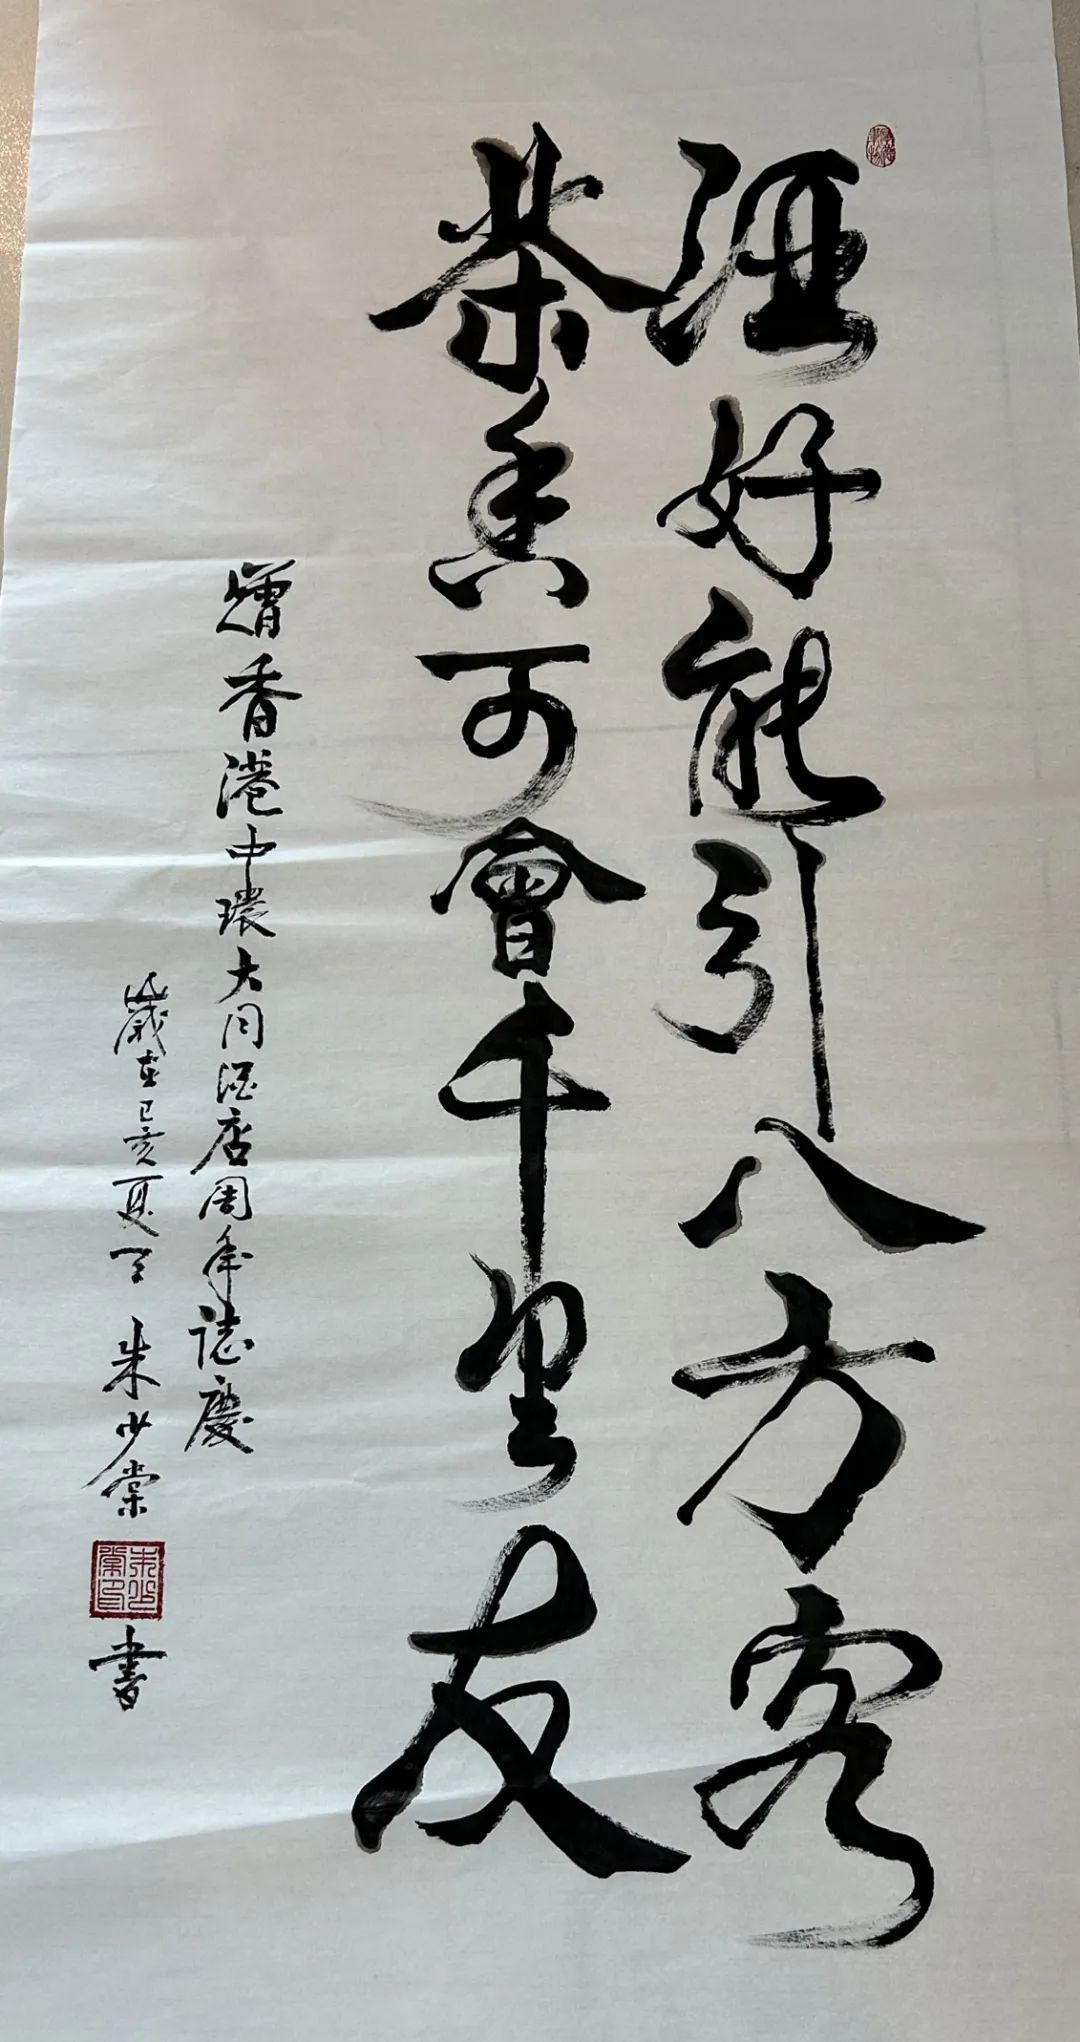 酒好能引八方客
茶香可會千里友
贈香港中環大同酒店周年誌慶
歲在己亥夏至 朱少棠
朱少棠印
書